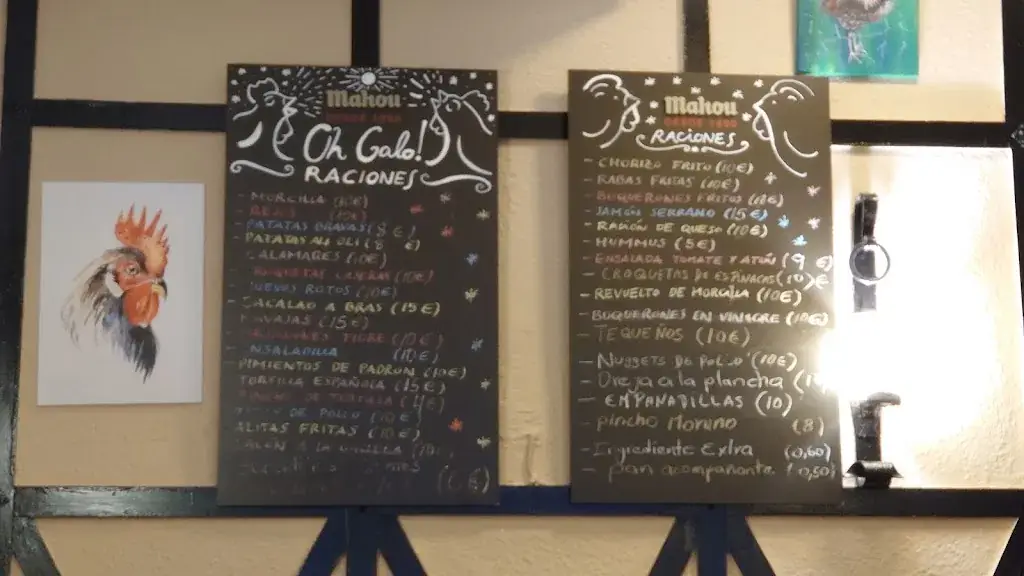 Mahou
Oh Galo!
RACIONES
- MORCILLA (10€)
- PATATAS BRAVAS (8€)
- PATATAS ALI OLI (8€)
CALAMARES (10€)
HUEVOS ROTOS (10€)
- BACALAO A BRAS (15€)
- NAVAJAS (15€)
TIGRE (10€)
- ENSALADILLA (10€)
PIMIENTOS DE PADRON (10€)
TORTILLA ESPAÑOLA (15€)
DE TORTILLA
DE POLLO (10€)
ALITAS FRITAS (10€)
Mahou
RACIONES
- CHORIZO FRITO (10€)
- RABAS FRITAS (10€)
- BUQUERONES FRITOS (10€)
- JAMÓN SERRANO (15€)
- RACIÓN DE QUESO (10€)
- HUMMUS (5€)
- ENSALADA TOMATE Y ATÚN (9€)
- CROQUETAS DE ESPINACAS (10)€
- REVUELTO DE MORCILLA (10€)
- BUQUERONES EN VINAGRE (10€)
- TEQUEÑOS (10€)
- Nuggets de Pollo (10€)
- Oreja a la plancha
- EMPANADILLAS (10)
- pincho Moruno (8)
- Ingrediente Extra (0,60)
- pan acompañante (0,50)